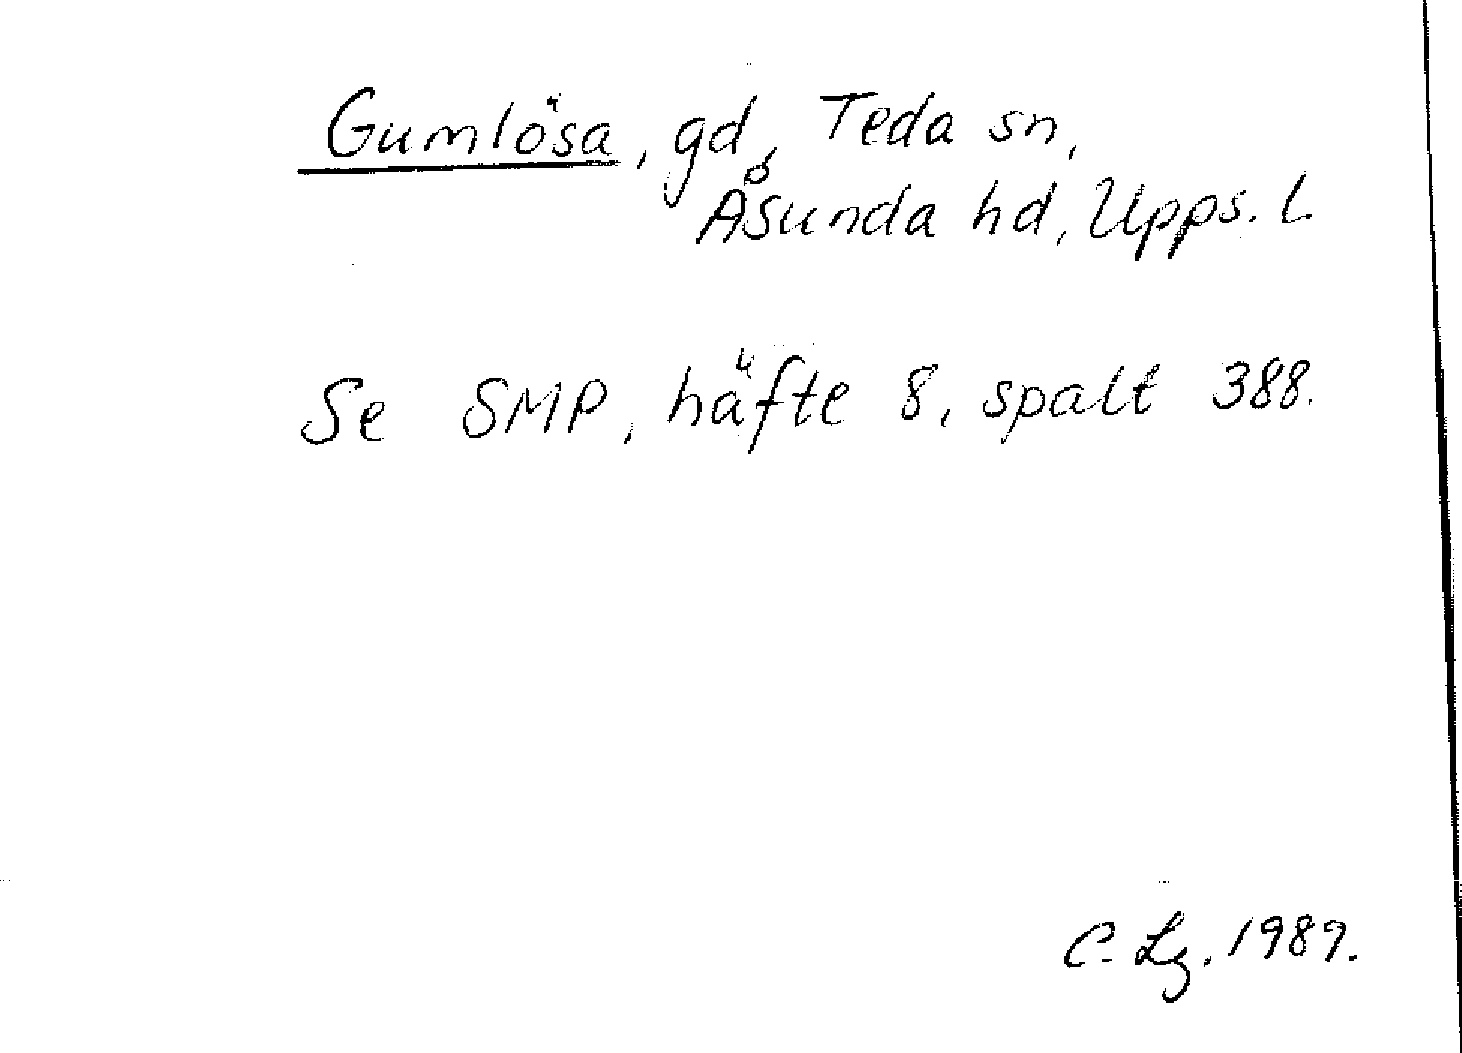 Gumlösa, gd, Teda sn,
Åsunda hd, Upps. l.
Se SMP, häfte 8, spalt 388.
C. Lg. 1989.